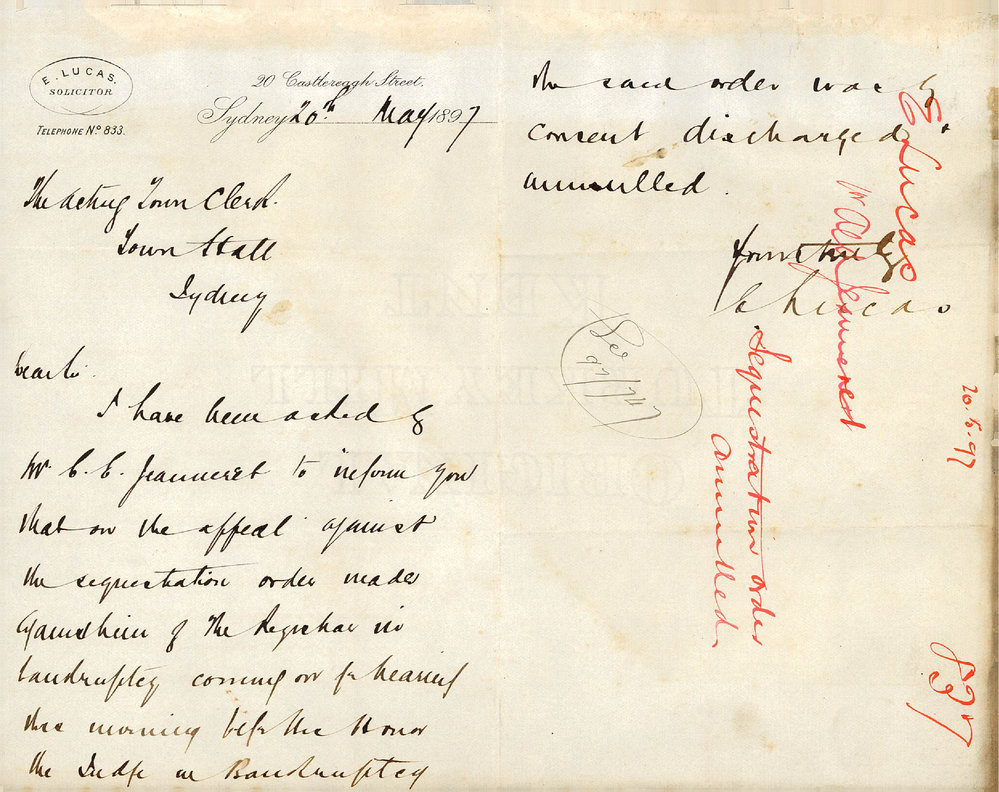 E. LUCAS.
SOLICITOR
TELEPHONE No 833.
20 Castlereagh Street.
Sydney 20th May 1897
The Acting Town Clerk.
Town Hall
Sydney
Dear Sir
I have been asked by
Mr C. E. Jeanneret to inform you
that on the appeal against
the sequestration order made
against him by the Registrar in
bankruptcy coming on for hearing
this morning before His Honor
the Judge in Bankruptcy
the said order was by
consent discharged &
annulled.
Yours truly
E Lucas
97/747
E Lucas
Jeanneret
Sequestration order
annulled
20.5.97
837